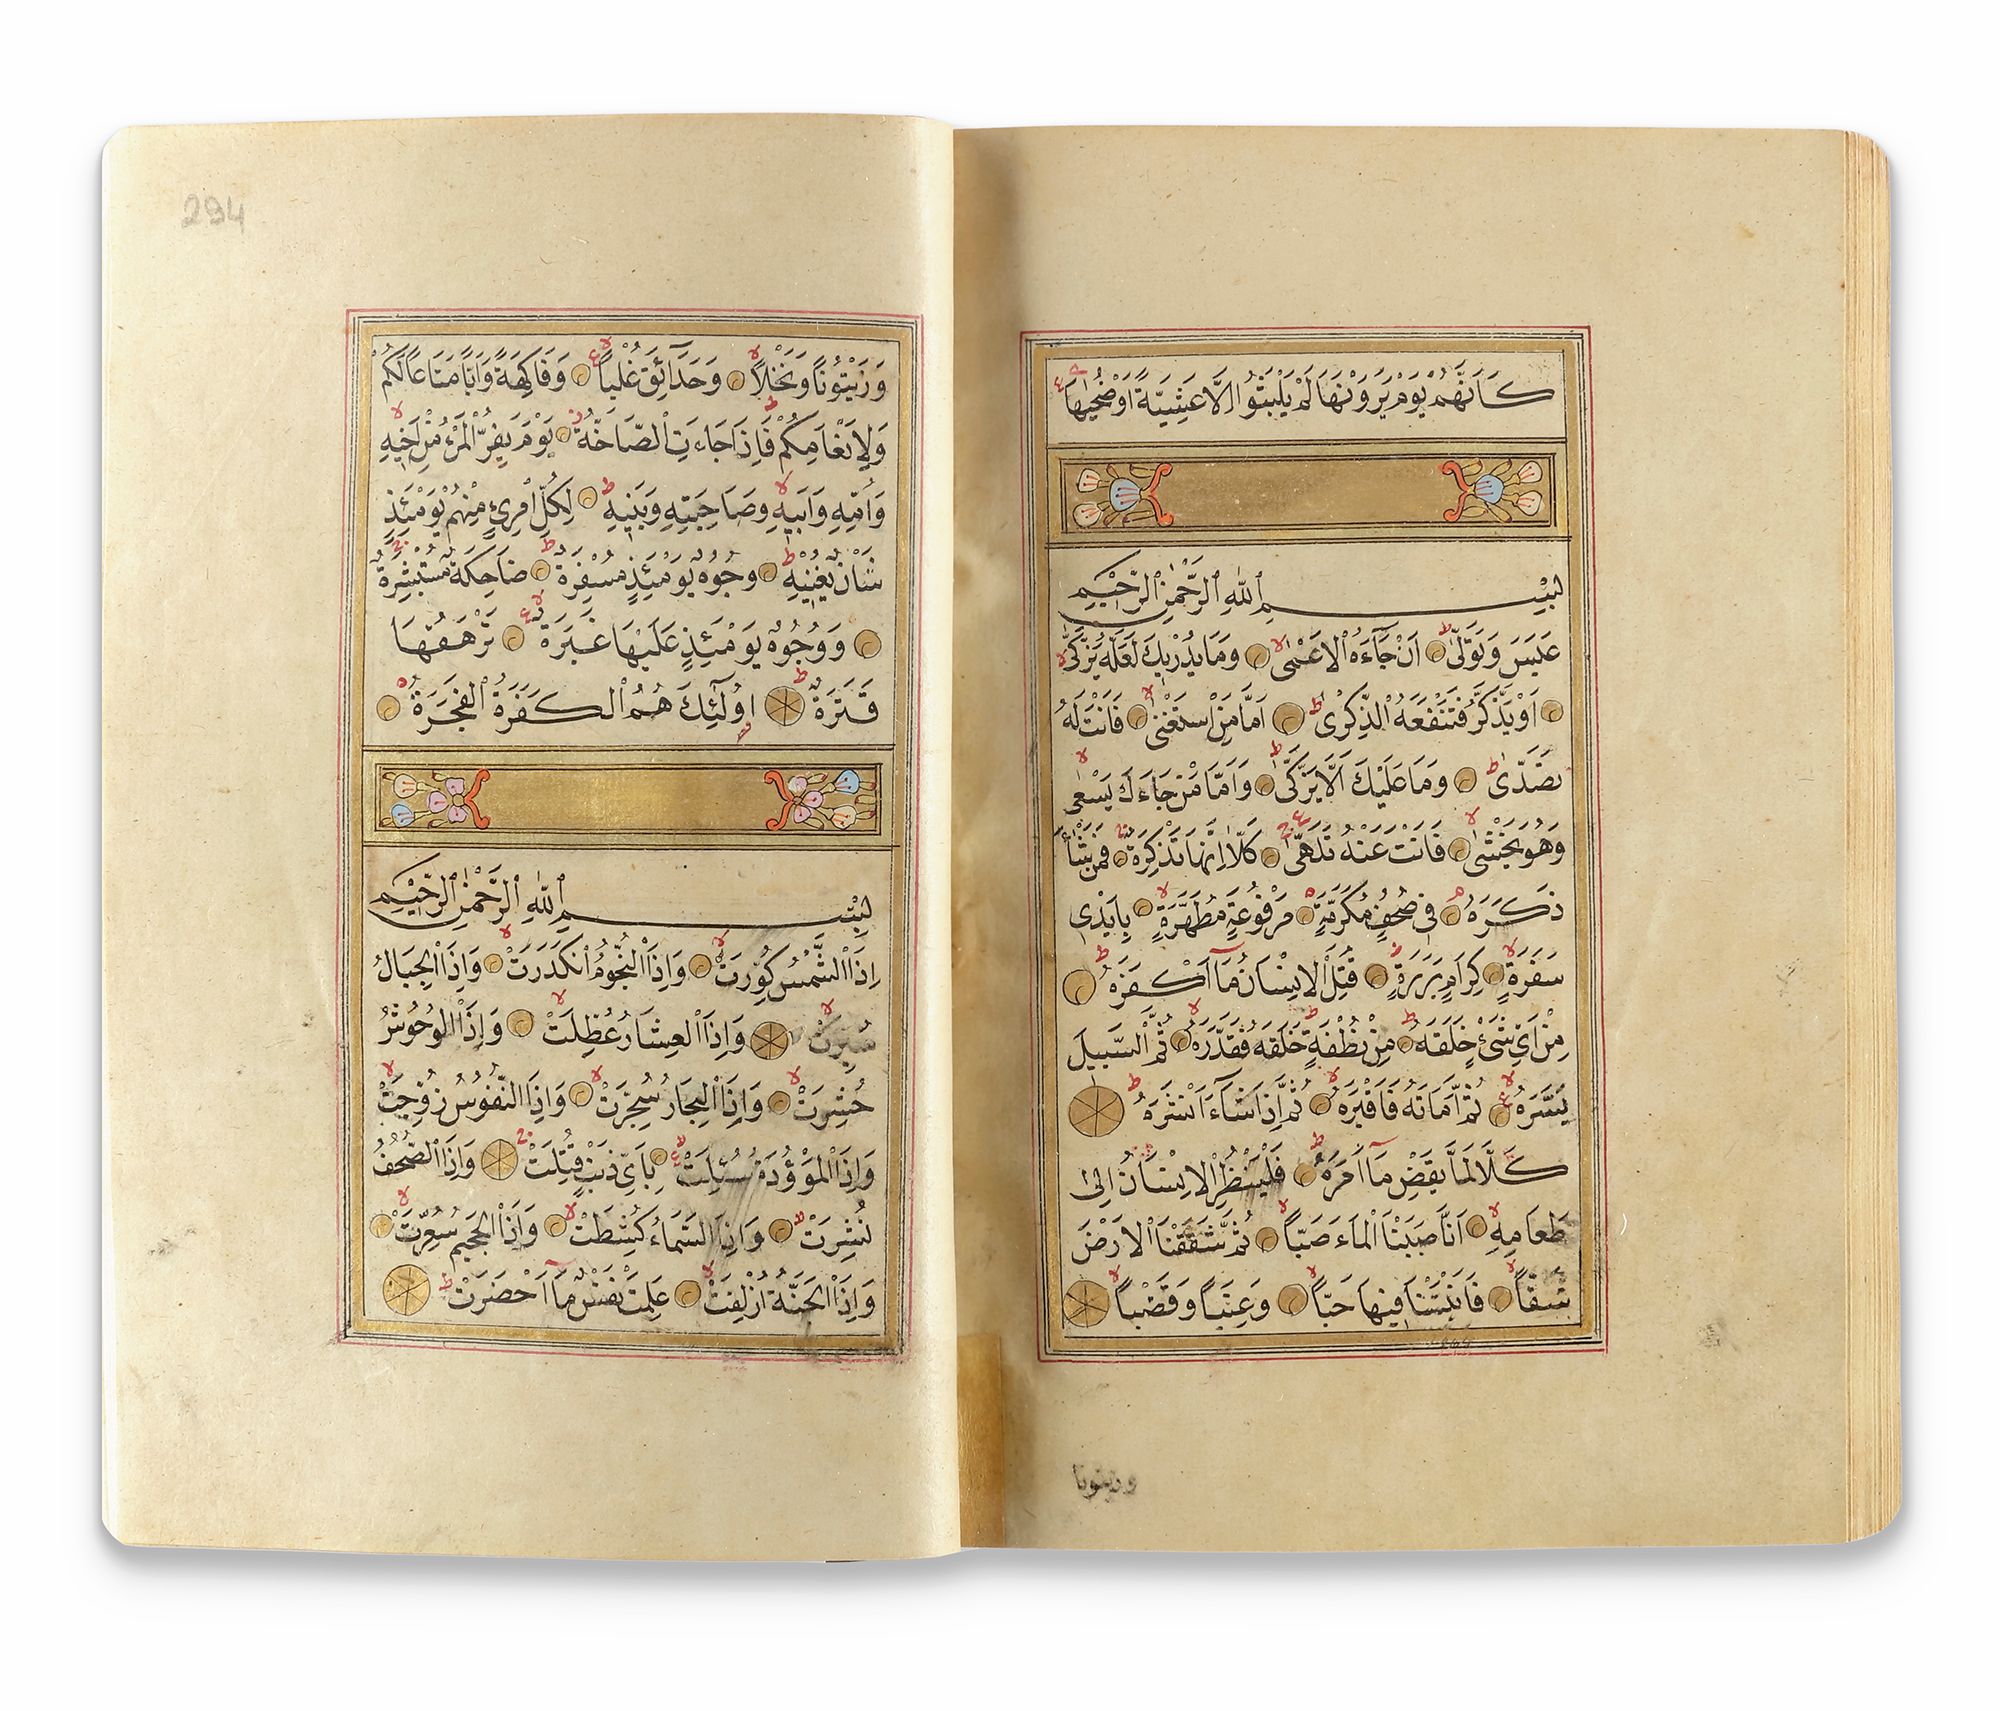 كَاَنَّهُمْ يَوْمَ يَرَوْنَهَا لَمْ يَلْبَثُوا اِلَّا عَشِيَّةً اَوْ ضُحٰيهَا
بِسْمِ اللّٰهِ الرَّحْمٰنِ الرَّحٖيمِ
عَبَسَ وَتَوَلّٰى اَنْ جَآءَهُ الْاَعْمٰى وَمَا يُدْرٖيكَ لَعَلَّهُ يَزَّكّٰى
اَوْ يَذَّكَّرُ فَتَنْفَعَهُ الذِّكْرٰى اَمَّا مَنِ اسْتَغْنٰى فَاَنْتَ لَهُ
تَصَدّٰى وَمَا عَلَيْكَ اَلَّا يَزَّكّٰى وَاَمَّا مَنْ جَاءَكَ يَسْعٰى
وَهُوَ يَخْشٰى فَاَنْتَ عَنْهُ تَلَهّٰى كَلَّا اِنَّهَا تَذْكِرَةٌ فَمَنْ شَاءَ
ذَكَرَهُ فٖى صُحُفٍ مُكَرَّمَةٍ مَرْفُوعَةٍ مُطَهَّرَةٍ بِاَيْدٖى
سَفَرَةٍ كِرَامٍ بَرَرَةٍ قُتِلَ الْاِنْسَانُ مَآ اَكْفَرَهُ
مِنْ اَىِّ شَىْءٍ خَلَقَهُ مِنْ نُطْفَةٍ خَلَقَهُ فَقَدَّرَهُ ثُمَّ السَّبٖيلَ
يَسَّرَهُ ثُمَّ اَمَاتَهُ فَاَقْبَرَهُ ثُمَّ اِذَا شَآءَ اَنْشَرَهُ
كَلَّا لَمَّا يَقْضِ مَآ اَمَرَهُ فَلْيَنْظُرِ الْاِنْسَانُ اِلٰى
طَعَامِهٖ اَنَّا صَبَبْنَا الْمَاءَ صَبًّا ثُمَّ شَقَقْنَا الْاَرْضَ
شَقًّا فَاَنْبَتْنَا فٖيهَا حَبًّا وَعِنَبًا وَقَضْبًا
وزيتونا
294
وَزَيْتُونًا وَنَخْلًا وَحَدَآئِقَ غُلْبًا وَفَاكِهَةً وَاَبًّا مَتَاعًا لَكُمْ
وَلِاَنْعَامِكُمْ فَاِذَا جَاءَتِ الصَّاخَّةُ يَوْمَ يَفِرُّ الْمَرْءُ مِنْ اَخٖيهِ
وَاُمِّهٖ وَاَبٖيهِ وَصَاحِبَتِهٖ وَبَنٖيهِ لِكُلِّ امْرِئٍ مِنْهُمْ يَوْمَئِذٍ
شَاْنٌ يُغْنٖيهِ وُجُوهٌ يَوْمَئِذٍ مُسْفِرَةٌ ضَاحِكَةٌ مُسْتَبْشِرَةٌ
وَوُجُوهٌ يَوْمَئِذٍ عَلَيْهَا غَبَرَةٌ تَرْهَقُهَا
قَتَرَةٌ اُولٰٓئِكَ هُمُ الْكَفَرَةُ الْفَجَرَةُ
بِسْمِ اللّٰهِ الرَّحْمٰنِ الرَّحٖيمِ
اِذَا الشَّمْسُ كُوِّرَتْ وَاِذَا النُّجُومُ انْكَدَرَتْ وَاِذَا الْجِبَالُ
سُيِّرَتْ وَاِذَا الْعِشَارُ عُطِّلَتْ وَاِذَا الْوُحُوشُ
حُشِرَتْ وَاِذَا الْبِحَارُ سُجِّرَتْ وَاِذَا النُّفُوسُ زُوِّجَتْ
وَاِذَا الْمَوْؤُدَةُ سُئِلَتْ بِاَىِّ ذَنْبٍ قُتِلَتْ وَاِذَا الصُّحُفُ
نُشِرَتْ وَاِذَا السَّمَاءُ كُشِطَتْ وَاِذَا الْجَحٖيمُ سُعِّرَتْ
وَاِذَا الْجَنَّةُ اُزْلِفَتْ عَلِمَتْ نَفْسٌ مَآ اَحْضَرَتْ